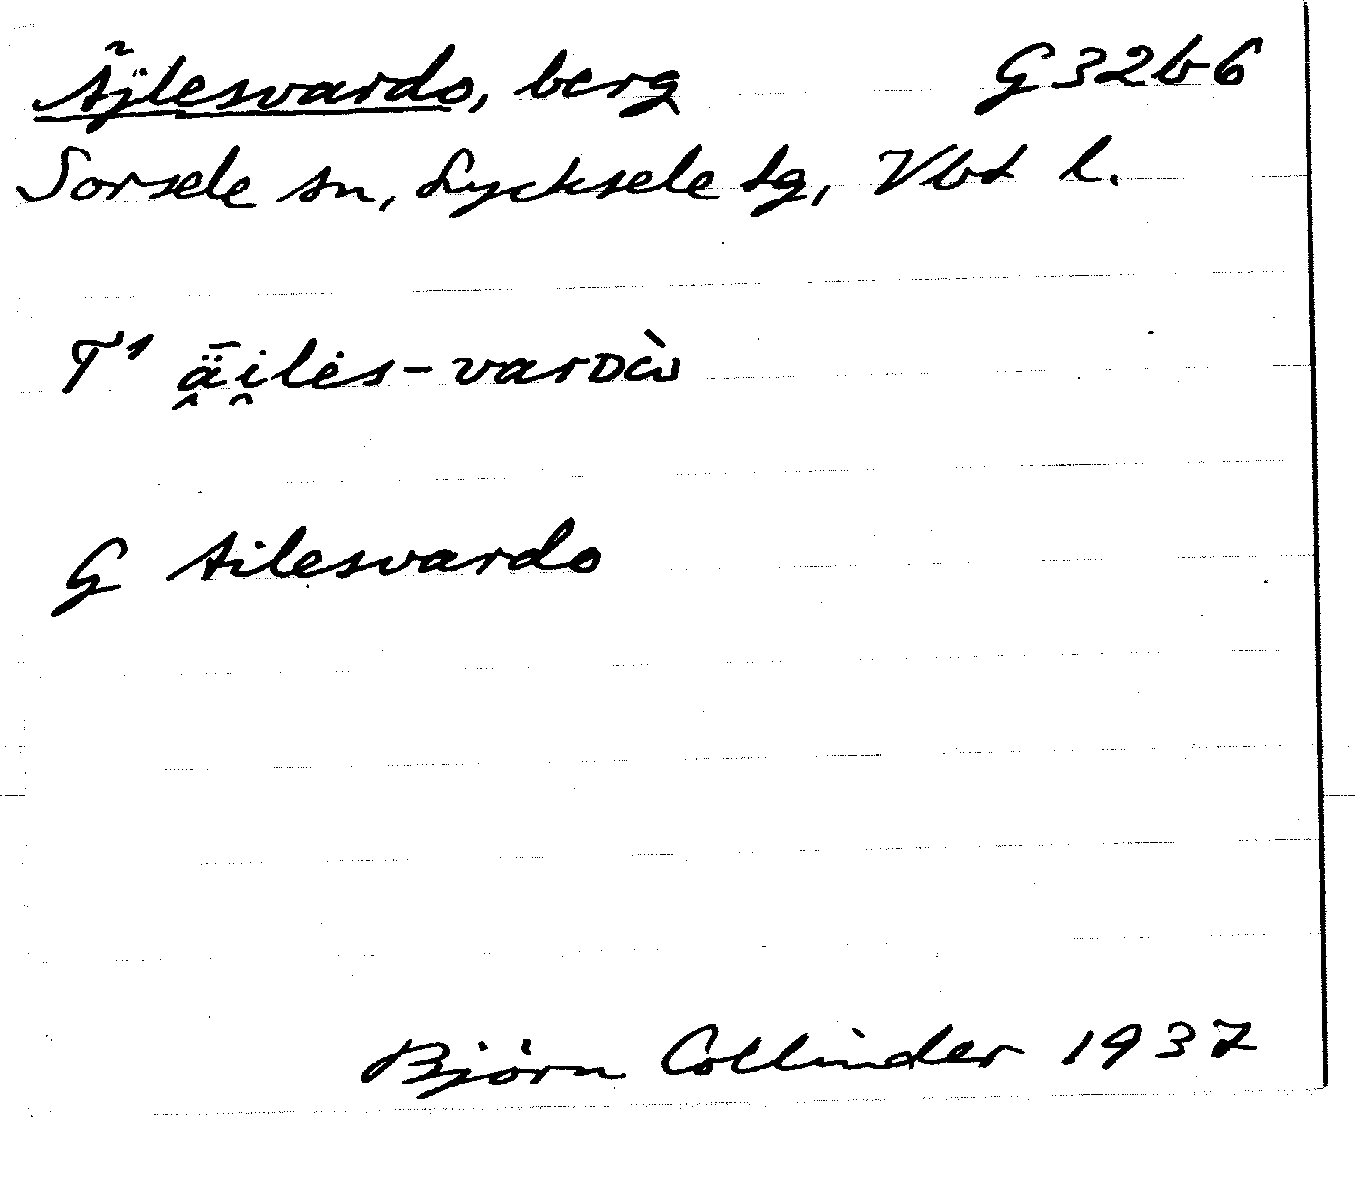 Äjlesvardo, berg G32b6
Sorsele sn, Lycksele lg, Vbt l.
T¹ ǟi̯lės-varᴅὼ
G Ailesvardo
Björn Collinder 1937